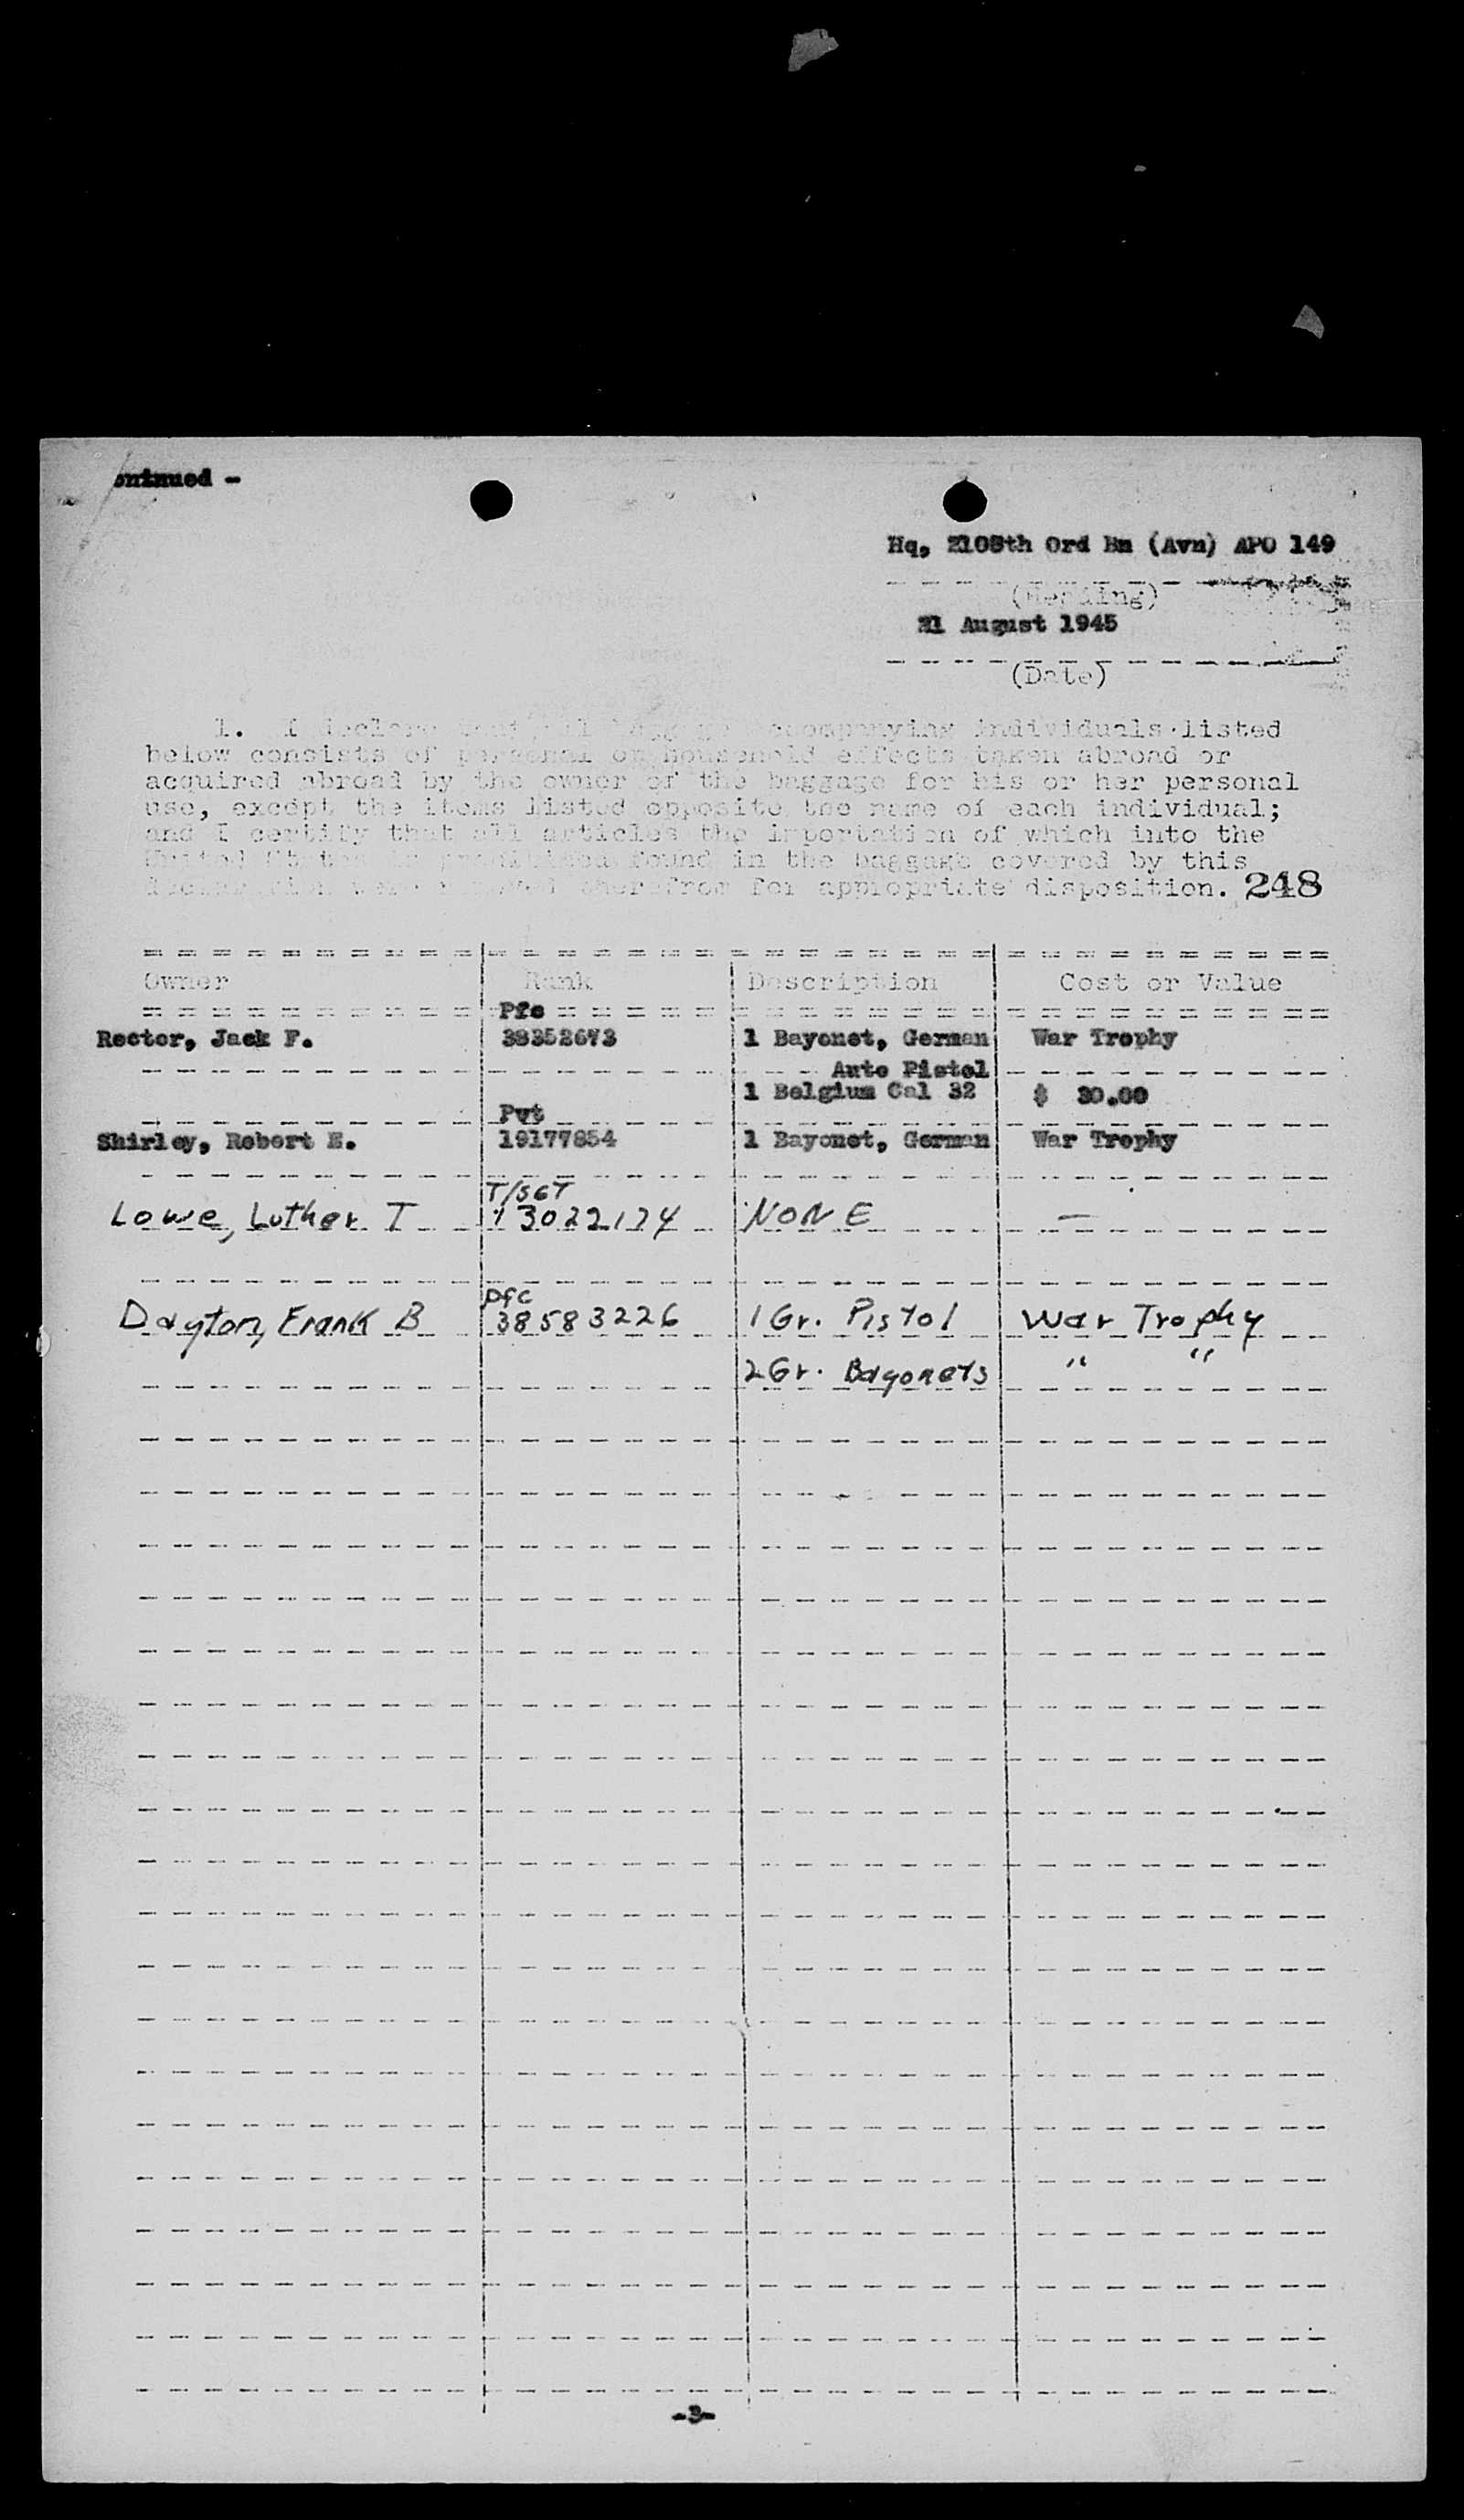 ontinued -
Hq, 2108th Ord Bn (Avn) APO 149
(Heading)
21 August 1945
(Date)
1. I declare that all baggage accompanying individuals listed
below consists of personal or household effects taken abroad or
acquired abroad by the owner of the baggage for his or her personal
use, except the items listed opposite the name of each individual;
and I certify that all articles the importation of which into the
United States is prohibited found in the baggage covered by this
declaration were removed therefrom for appropriate disposition. 248
Owner Rank Description Cost or Value
Pfc
Rector, Jack F. 38352673 1 Bayonet, German War Trophy
Auto Pistol
1 Belgium Cal 32 $ 30.00
Pvt
Shirley, Robert E. 19177854 1 Bayonet, German War Trophy
T/SGT
Lowe, Luther I 13022124 NONE —
Pfc
Dayton, Frank B 38583226 1 Gr. Pistol War Trophy
2 Gr. Bayonets " "
-3-